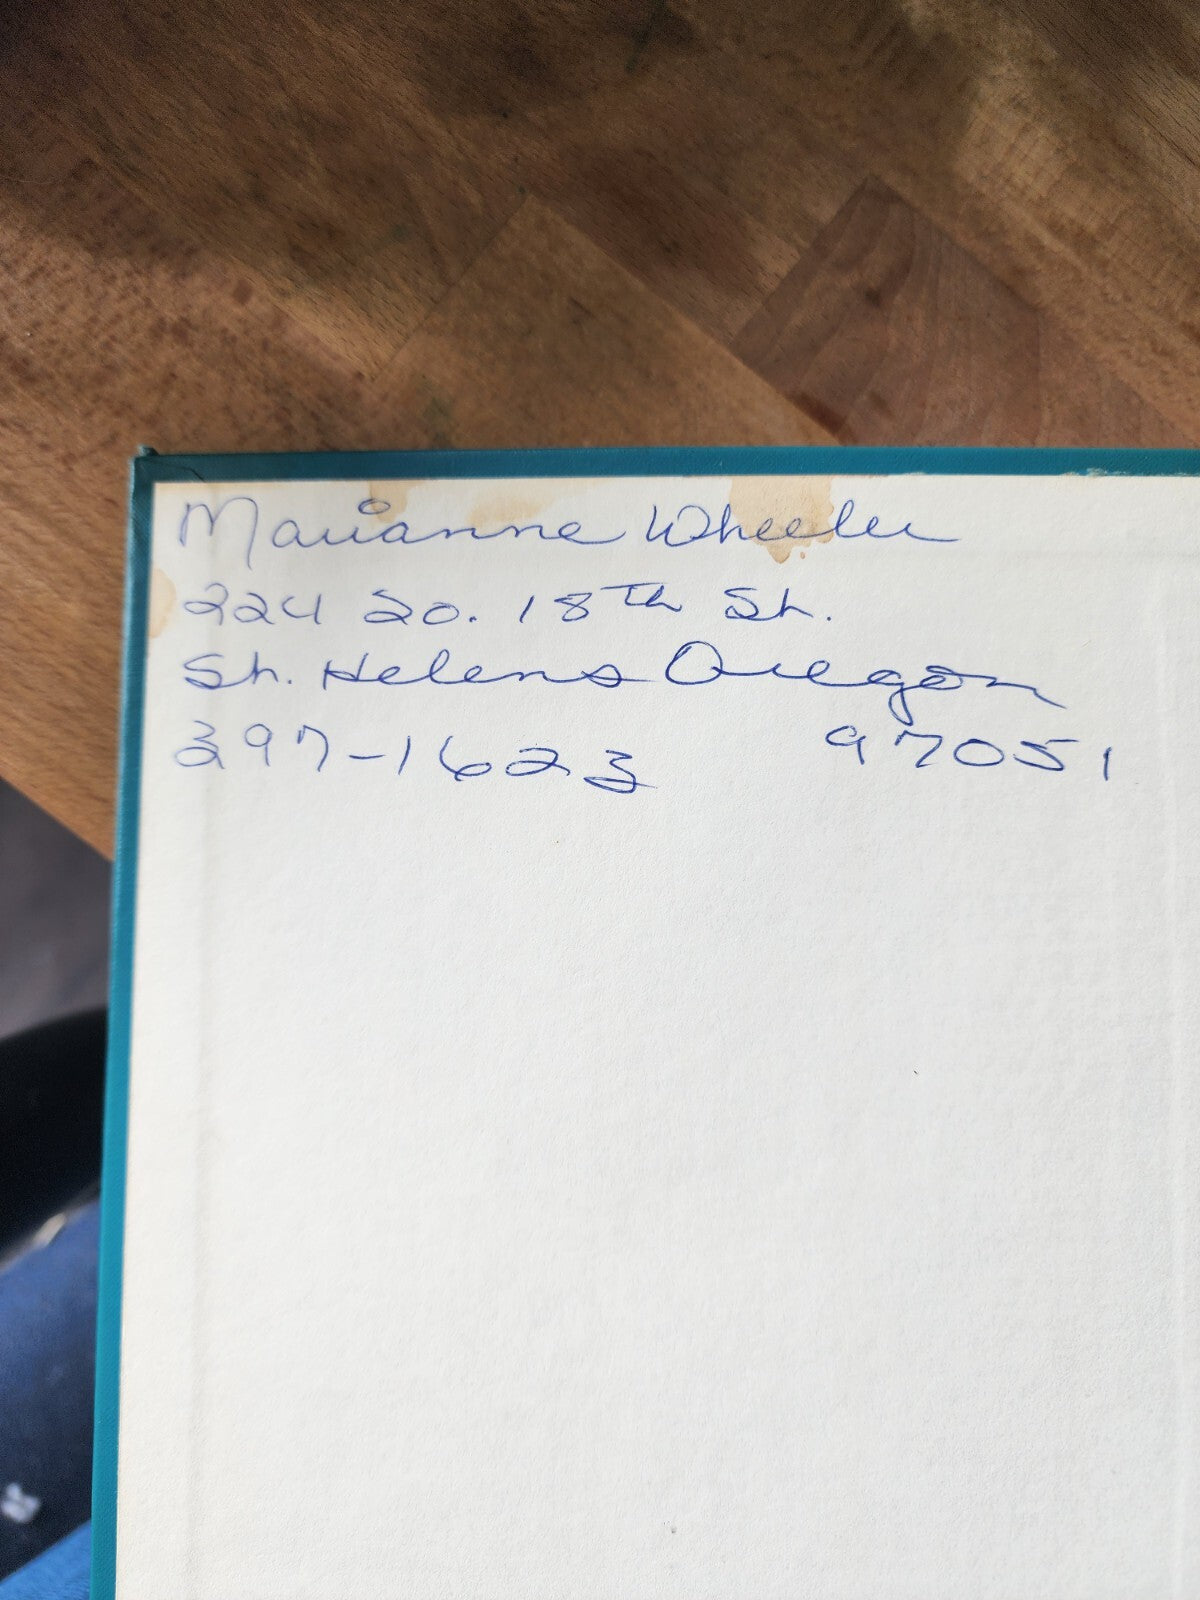 Marianne Wheeler
224 So. 18th St.
St. Helens Oregon
397-1623 97051